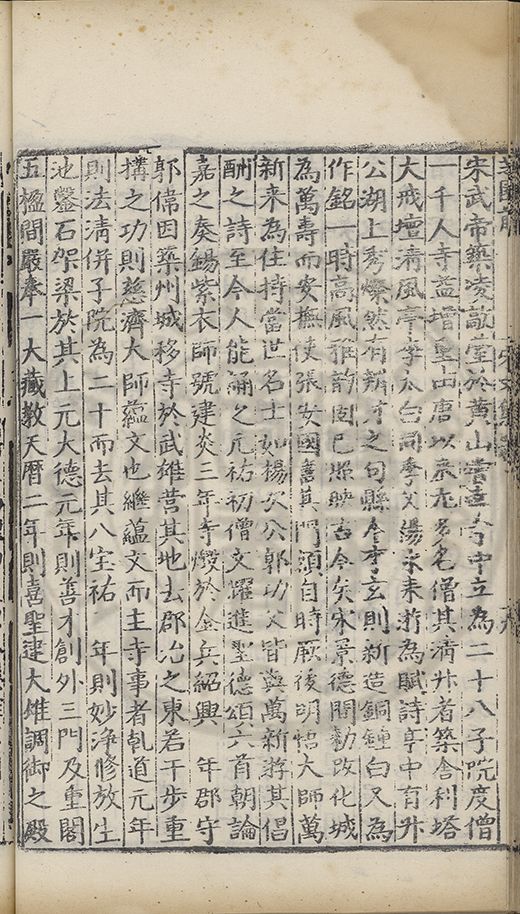 宋武帝築凌歊臺於黄山 寺中立為二十八子院度僧
一千人寺盖增重山唐以來尤多名僧其清升者築舍利塔
大戒壇清風亭李太白同季父陽冰来游為賦詩亭中有升
公湖上秀燦然有辨才之句縣令李玄則新造銅鍾白又為
作銘一時高風雅韵固已照映古今矣宋景德間勑改化城
為萬壽而安撫使張安國書其門頭自時厥後明悟大師萬
新来為住持當世名士如楊次公郭功父皆與萬新游其倡
酬之詩至今人能誦之元祐初僧文躍進聖德頌六首朝論
嘉之奏錫紫衣師號建炎三年寺燬於金兵紹興 年郡守
郭偉因築州城移寺於武雄營其地去郡治之東若干步重
搆之功則慈濟大師蘊文也繼蘊文而主寺事者乹道元年
則法清併子院為二十而去其八宝祐 年則妙浄修放生
池鑿石架梁於其上元大德元年則善才創外三門及重閣
五楹間嚴奉一大藏教天曆二年則喜聖建大雄調御之殿